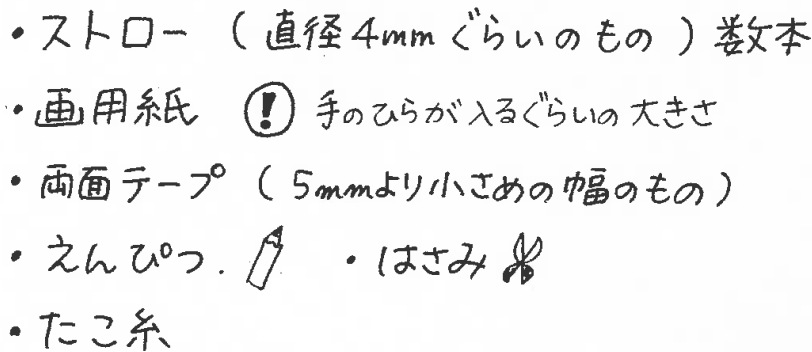 ・ストロー（直径4mmぐらいのもの）数本
・画用紙 ! 手のひらが入るぐらいの大きさ
・両面テープ（5mmより小さめの幅のもの）
・えんぴつ. ・はさみ
・たこ糸